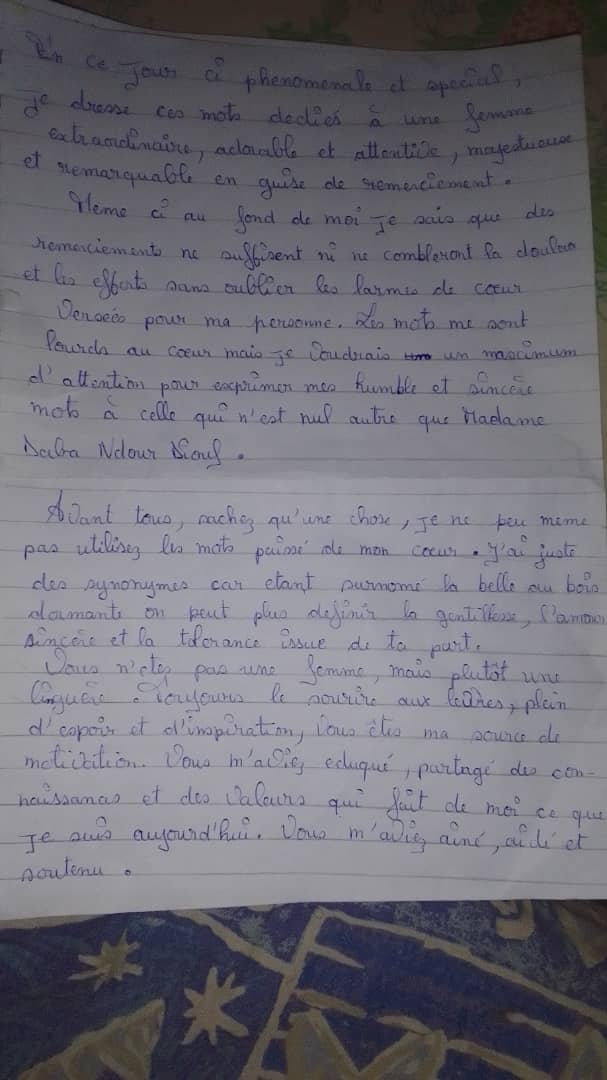 En ce jour ci phenomenale et special,
je dresse ces mots dediés à une femme
extraordinaire, adorable et attentive, majestueuse
et remarquable en guise de remerciement.
Meme ci au fond de moi je sais que des
remerciements ne suffisent ni ne combleront la douleur
et les efforts sans oublier les larmes de cœur
Versées pour ma personne. Les mots me sont
lourds au cœur mais je Voudrais un mascimum
d'attention pour exprimer mes humble et sincère
mots à celle qui n'est nul autre que Madame
Daba Ndour Diouf.
AVant tous, sachez qu'une chose, je ne peu meme
pas utilisez les mots puissé de mon cœur. J'ai juste
des synonymes car etant surnomé la belle au bois
dormante on peut plus definir la gentillesse, l'amour
sincère et la tolerance issue de ta part.
Vous n'etes pas une femme, mais plutôt une
linguère. Toujours le sourire aux lèvres, plein
d'espoir et d'inspiration, Vous êtes ma source de
motivation. Vous m'aviez eduqué, partagé des con-
naissances et des Valeurs qui fait de moi ce que
je suis aujourd'hui. Vous m'aviez aimé, aidé et
soutenu.